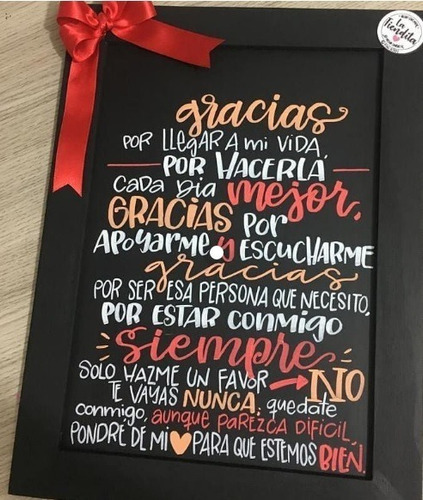 La
Tiendita
gracias
POR LLEGAR A mi VIDA,
POR HACERLA
CADA DÍA mejor,
GRACIAS POR
APOYARME y ESCUCHARME
gracias
POR SER ESA PERSONA QUE NECESITO,
POR ESTAR CONMIGO
siempre
SOLO HAZME UN FAVOR → NO
TE VAYAS NUNCA, quedate
conmigo, aunque PAREZCA DIFICIL,
PONDRÉ DE MI PARA QUE ESTEMOS BIEN.